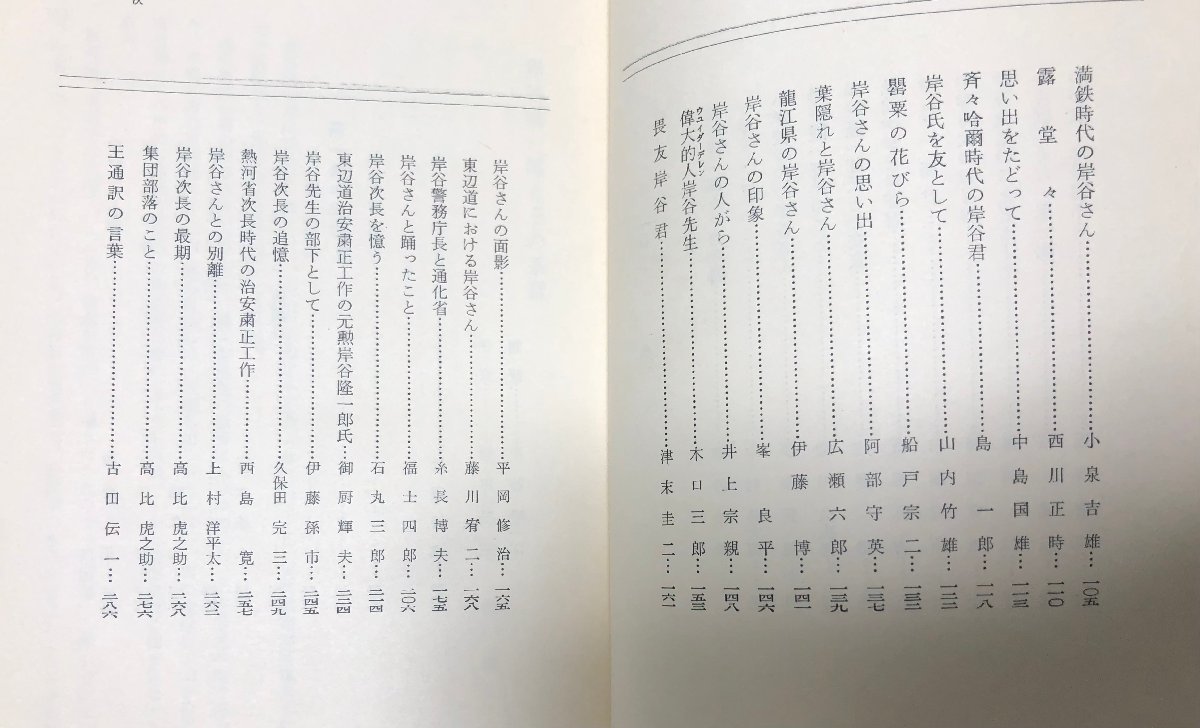 満鉄時代の岸谷さん……小泉吉雄…一〇五
露堂々……西川正時…一一〇
思い出をたどって……中島国雄…一一三
斉々哈爾時代の岸谷君……島一郎…一一八
岸谷氏を友として……山内竹雄…一二二
罌粟の花びら……船戸宗二…一三三
岸谷さんの思い出……阿部守英…一三七
葉隠れと岸谷さん……広瀬六郎…一三九
龍江県の岸谷さん……伊藤博…一四一
岸谷さんの印象……峯良平…一四六
岸谷さんの人がら……井上宗親…一四八
偉大的人岸谷先生……木口三郎…一五三
ウユイダーデレン
畏友岸谷君……津末圭二…一六一
岸谷さんの面影……平岡修治…一六五
東辺道における岸谷さん……藤川宥二…一六八
岸谷警務庁長と通化省……糸長博夫…一七五
岸谷さんと踊ったこと……福士四郎…二〇六
岸谷次長を憶う……石丸三郎…二一四
東辺道治安粛正工作の元勲岸谷隆一郎氏…御厨輝夫…二二四
岸谷先生の部下として……伊藤孫市…二四五
岸谷次長の追憶……久保田完三…二四九
熱河省次長時代の治安粛正工作……西島寛…二五七
岸谷さんとの別離……上村洋平太…二六二
岸谷次長の最期……高比虎之助…二六八
集団部落のこと……高比虎之助…二七六
王通訳の言葉……古田伝一…二八六